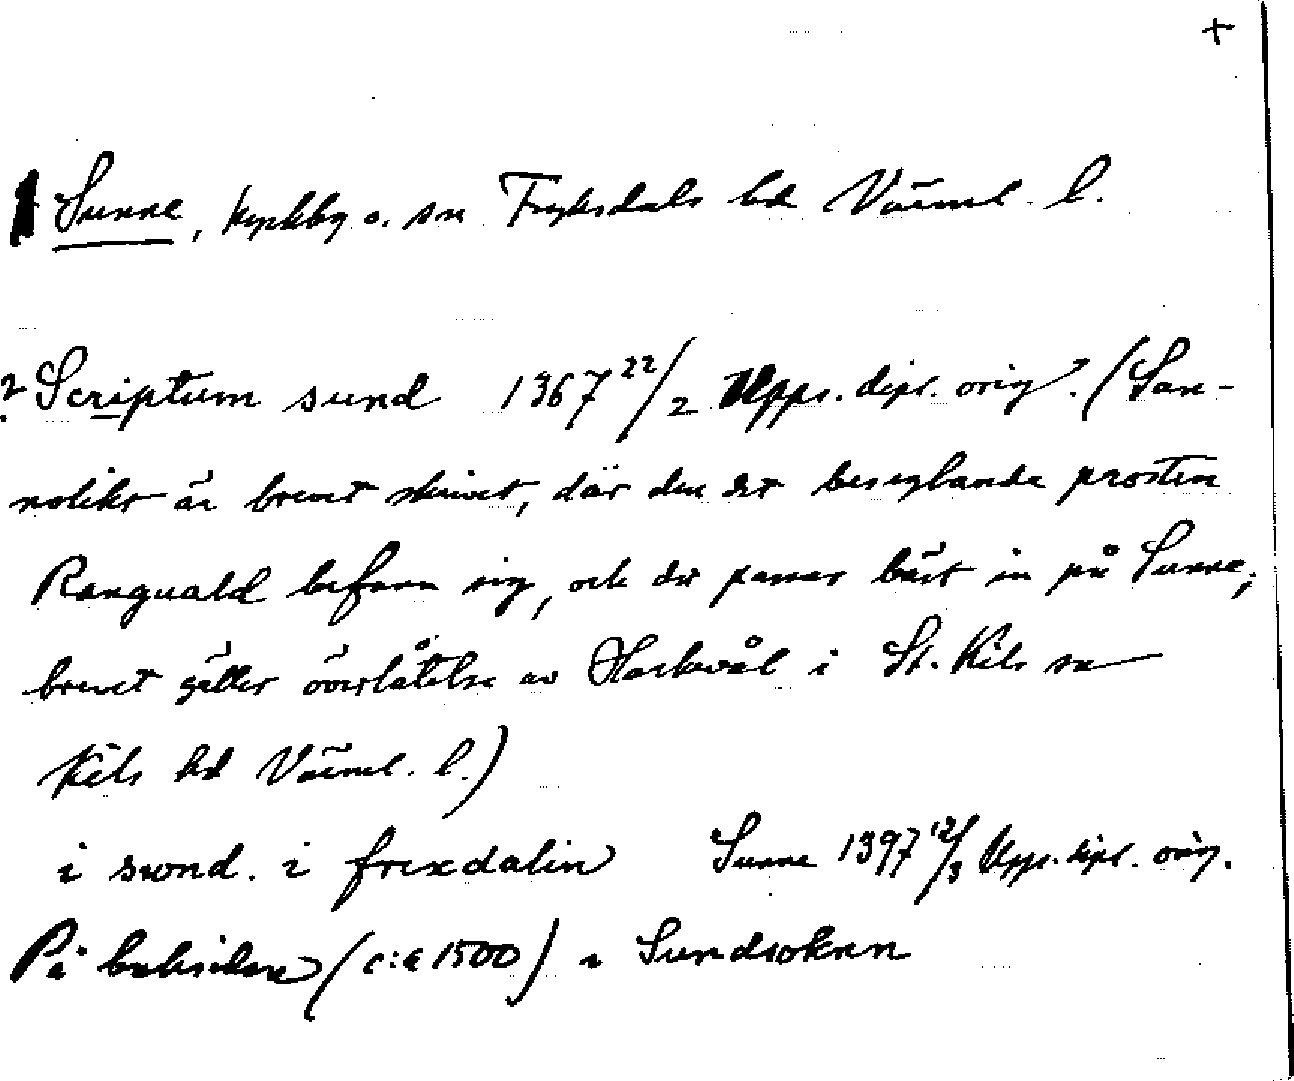 +
Sunne, kyrkby o. sn Fryksdals hd Värml. l.
? Scriptum sund 1367 22/2 Upps. dipl. orig. (San-
nolikt är brevet skrivet, där den det beseglande prosten
Ranguald befann sig, och det passar bäst in på Sunne;
brevet gäller överlåtelse av Hackvål i St. Kils sn
Kils hd Värml. l.)
i swnd. i frixdalin Sunne 1397 12/3 Upps. dipl. orig.
På baksidan (c:a 1500) i Sundsoknn